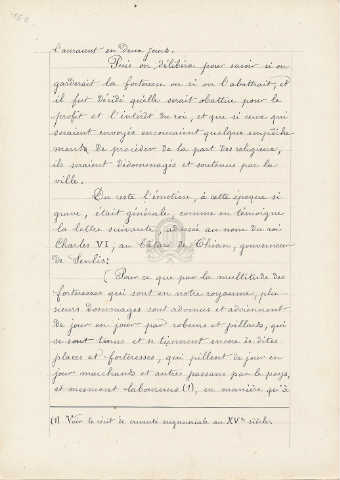 l'auraient en deux jours.
Puis on délibéra pour savoir si on
garderait la forteresse ou si on l'abattrait, et
il fut décidé qu'elle serait abattue pour le
profit et l'intérêt du roi, et que si ceux qui
seraient envoyés encouraient quelque empêche
ment de procéder de la part des religieux,
ils seraient dédommagés et soutenus par la
ville.
Du reste l'émotion, à cette époque si
grave, était générale, comme en témoigne
la lettre suivante, adressée au nom du roi
Charles VI, au de gouverneur
de Senlis:
(Pour ce que par la multitude des
forteresses qui sont en notre royaume, plu-
sieurs dommages sont advenus et adviennent
de jour en jour par robeurs et pillards, qui
se sont tenus et se tiennent encore ès dites
places et forteresses, qui pillent de jour en
jour marchands et autres passans par le pays,
et mesmont laboureurs (1), en manière qu'à
(1) Voir le récit de cruauté au XVe siècle.